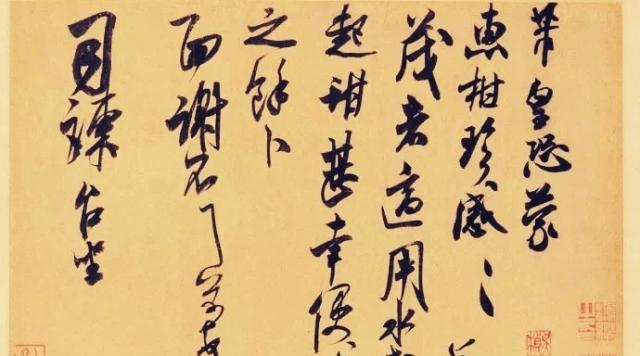 芾皇恐蒙
惠柑珍感〻
茂者適用水
起甜甚幸便
之餘卜
面謝不
司諫台坐